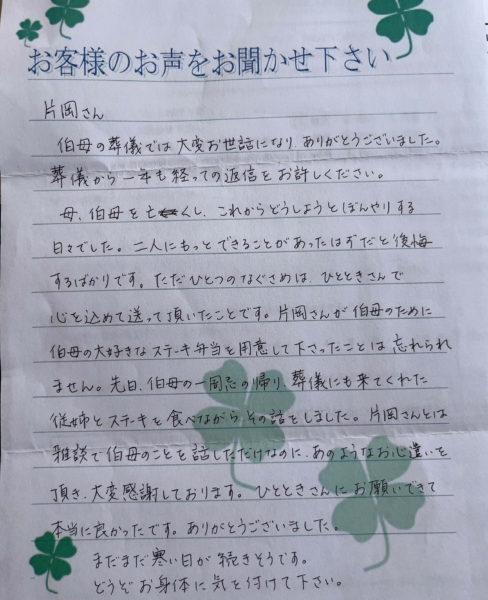 お客様のお声をお聞かせ下さい
片岡さん
伯母の葬儀では大変お世話になり、ありがとうございました。
葬儀から一年も経っての返信をお許しください。
母、伯母を亡くし、これからどうしようとぼんやりする
日々でした。二人にもっとできることがあったはずだと後悔
するばかりです。ただひとつのなぐさめは、ひとときさんで
心を込めて送って頂いたことです。片岡さんが伯母のために
伯母の大好きなステーキ弁当を用意して下さったことは忘れられ
ません。先日、伯母の一周忌の帰り、葬儀にも来てくれた
従姉とステーキを食べながら、その話をしました。片岡さんとは
雑談で伯母のことを話しただけなのに、あのようなお心遣いを
頂き、大変感謝しております。ひとときさんにお願いできて
本当に良かったです。ありがとうございました。
まだまだ寒い日が続きそうです。
どうぞお身体に気を付けて下さい。